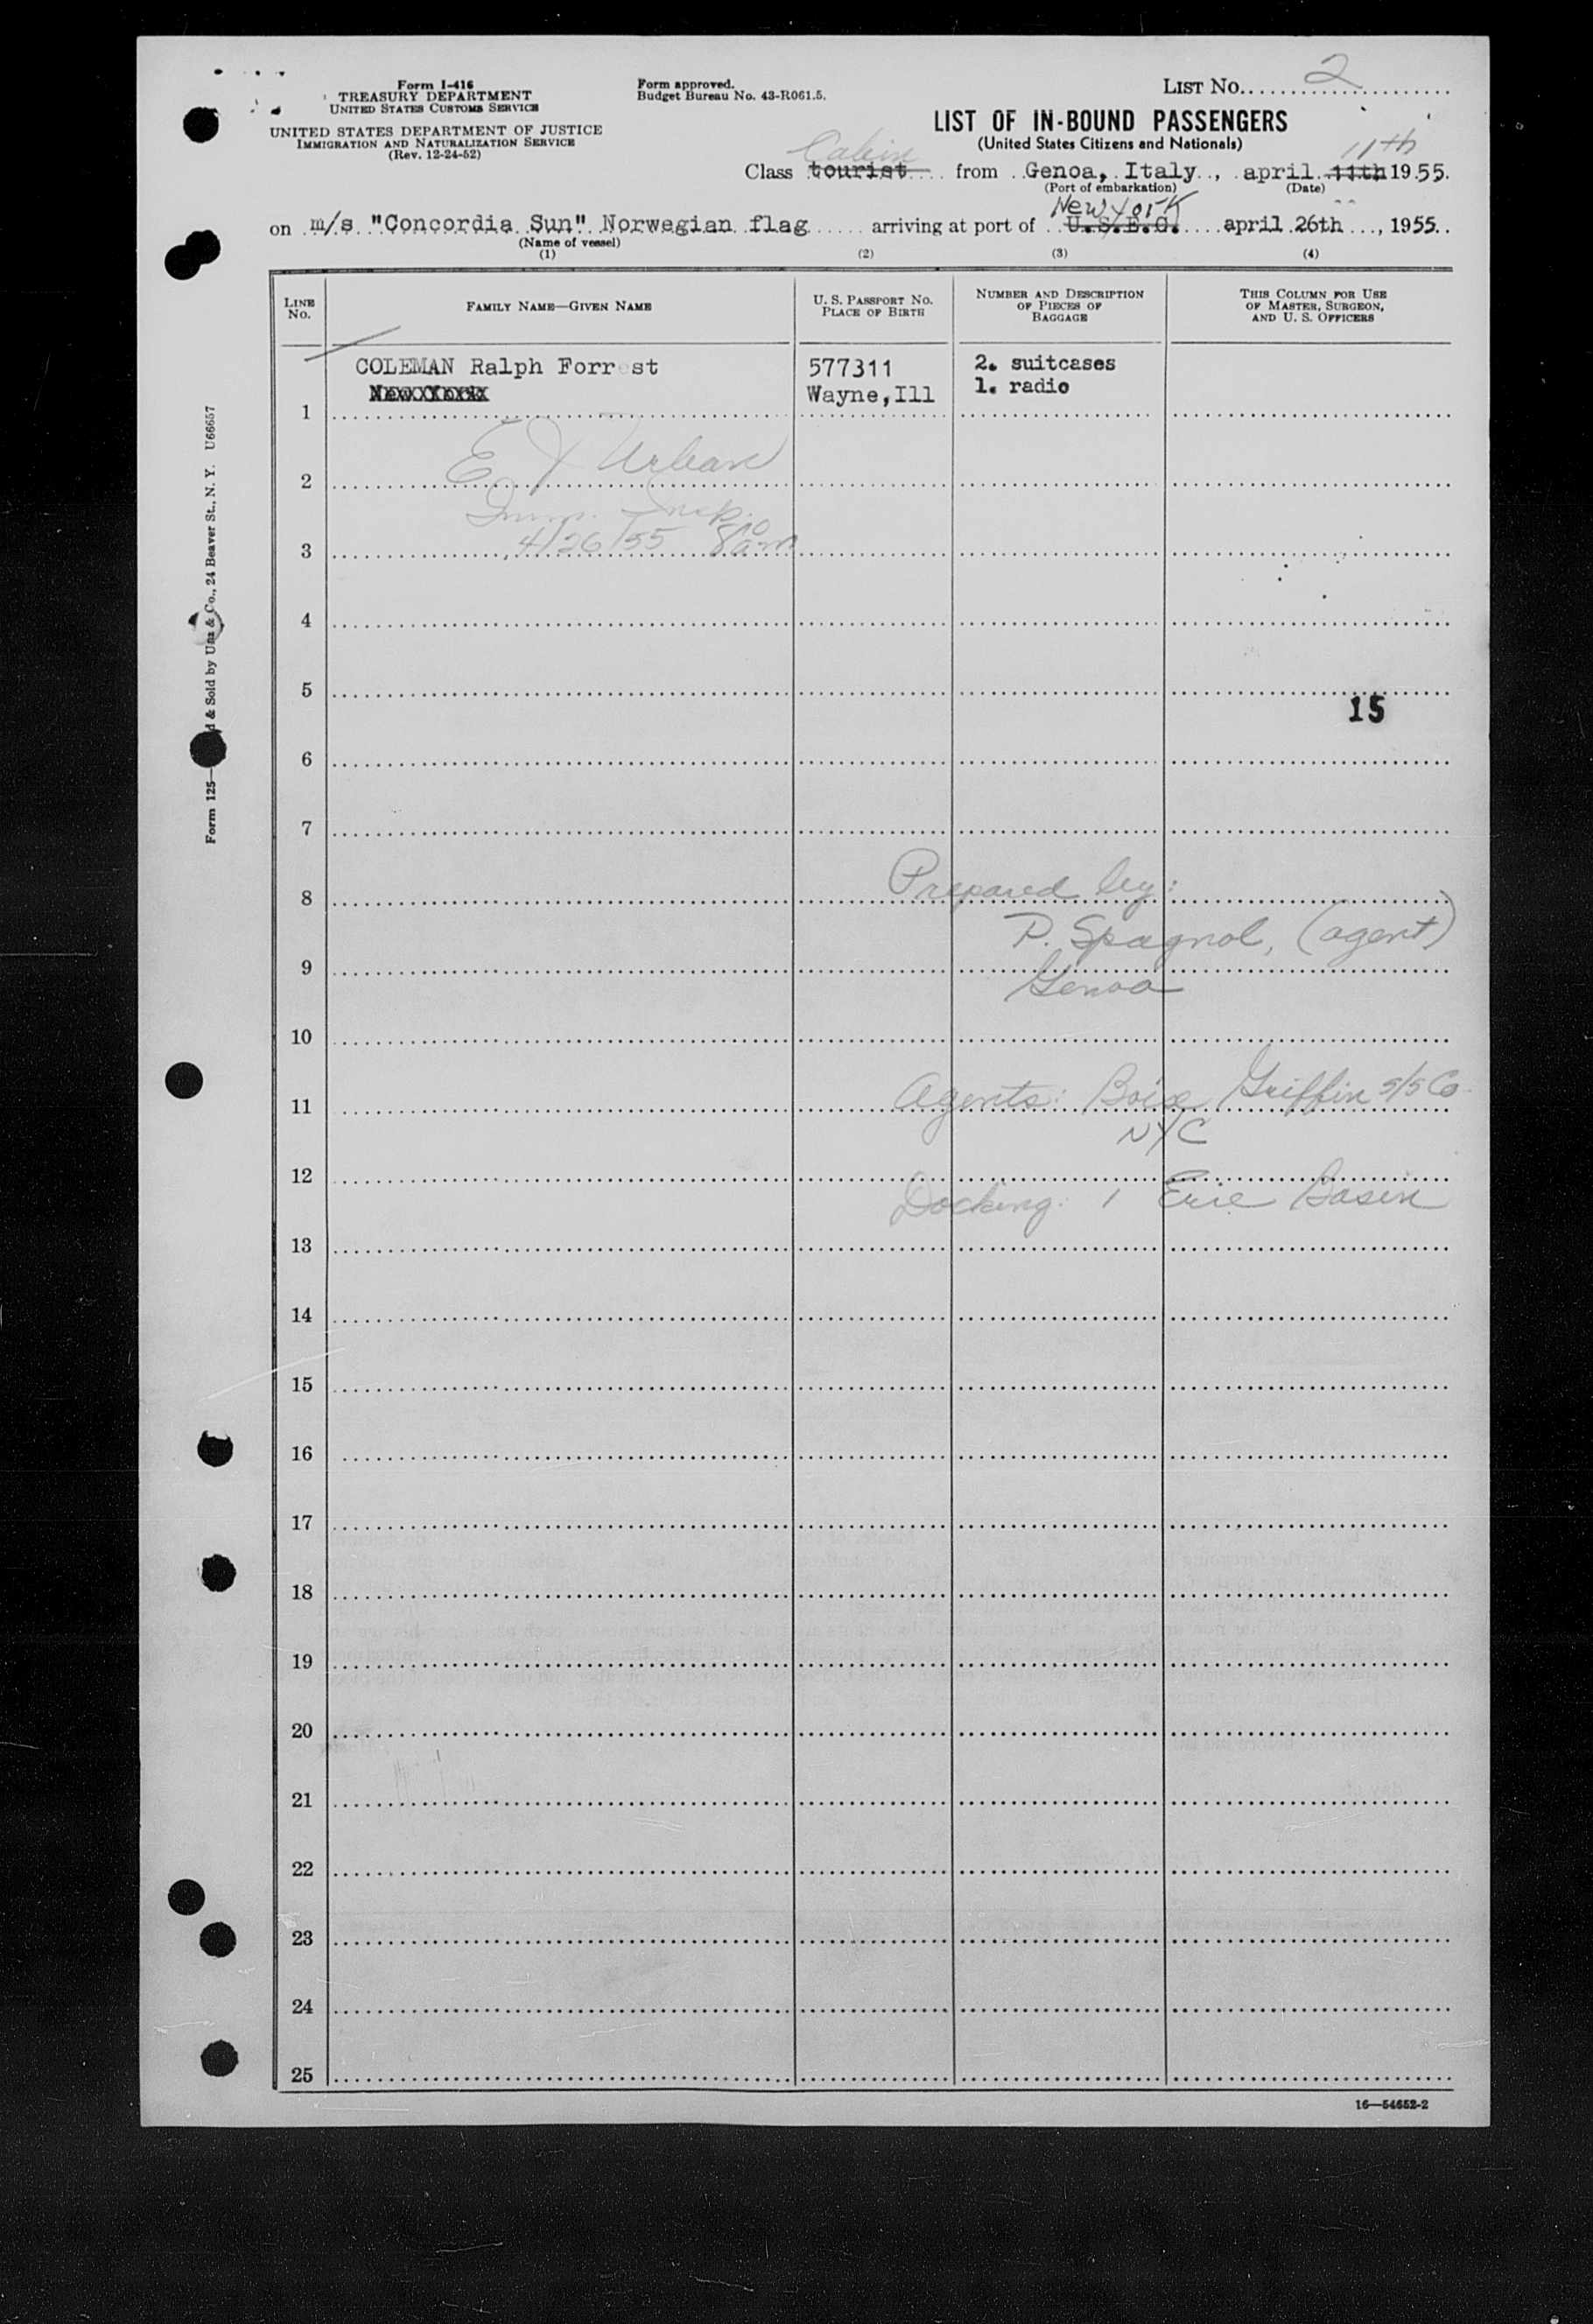 Form I-416
TREASURY DEPARTMENT
UNITED STATES CUSTOMS SERVICE
UNITED STATES DEPARTMENT OF JUSTICE
IMMIGRATION AND NATURALIZATION SERVICE
(Rev. 12-24-52)
Form approved.
Budget Bureau No. 43-R061.5.
LIST No. 2
LIST OF IN-BOUND PASSENGERS
(United States Citizens and Nationals)
Cabin 11th
Class tourist from Genoa, Italy, april 11th 1955.
(Port of embarkation) (Date)
New York
on m/s "Concordia Sun" Norwegian flag arriving at port of U.S.E.C. april 26th, 1955.
(Name of vessel)
(1) (2) (3) (4)
LINE No. FAMILY NAME—GIVEN NAME U. S. PASSPORT No. PLACE OF BIRTH NUMBER AND DESCRIPTION OF PIECES OF BAGGAGE THIS COLUMN FOR USE OF MASTER, SURGEON, AND U. S. OFFICERS
COLEMAN Ralph Forrest 577311 2. suitcases
NewxYorkx Wayne,Ill 1. radio
1
E J Urban
2
Imm. Insp.
3 4/26/55 8 10 am
4
5
15
6
7
Prepared by:
8
P. Spagnol, (agent)
9
Genoa
10
11 Agents: Boise Griffin S/S Co.
NYC
12
Docking: 1 Erie Basin
13
14
15
16
17
18
19
20
21
22
23
24
25
16—54652-2
Form 125— d & Sold by Unz & Co., 24 Beaver St., N. Y. U66657